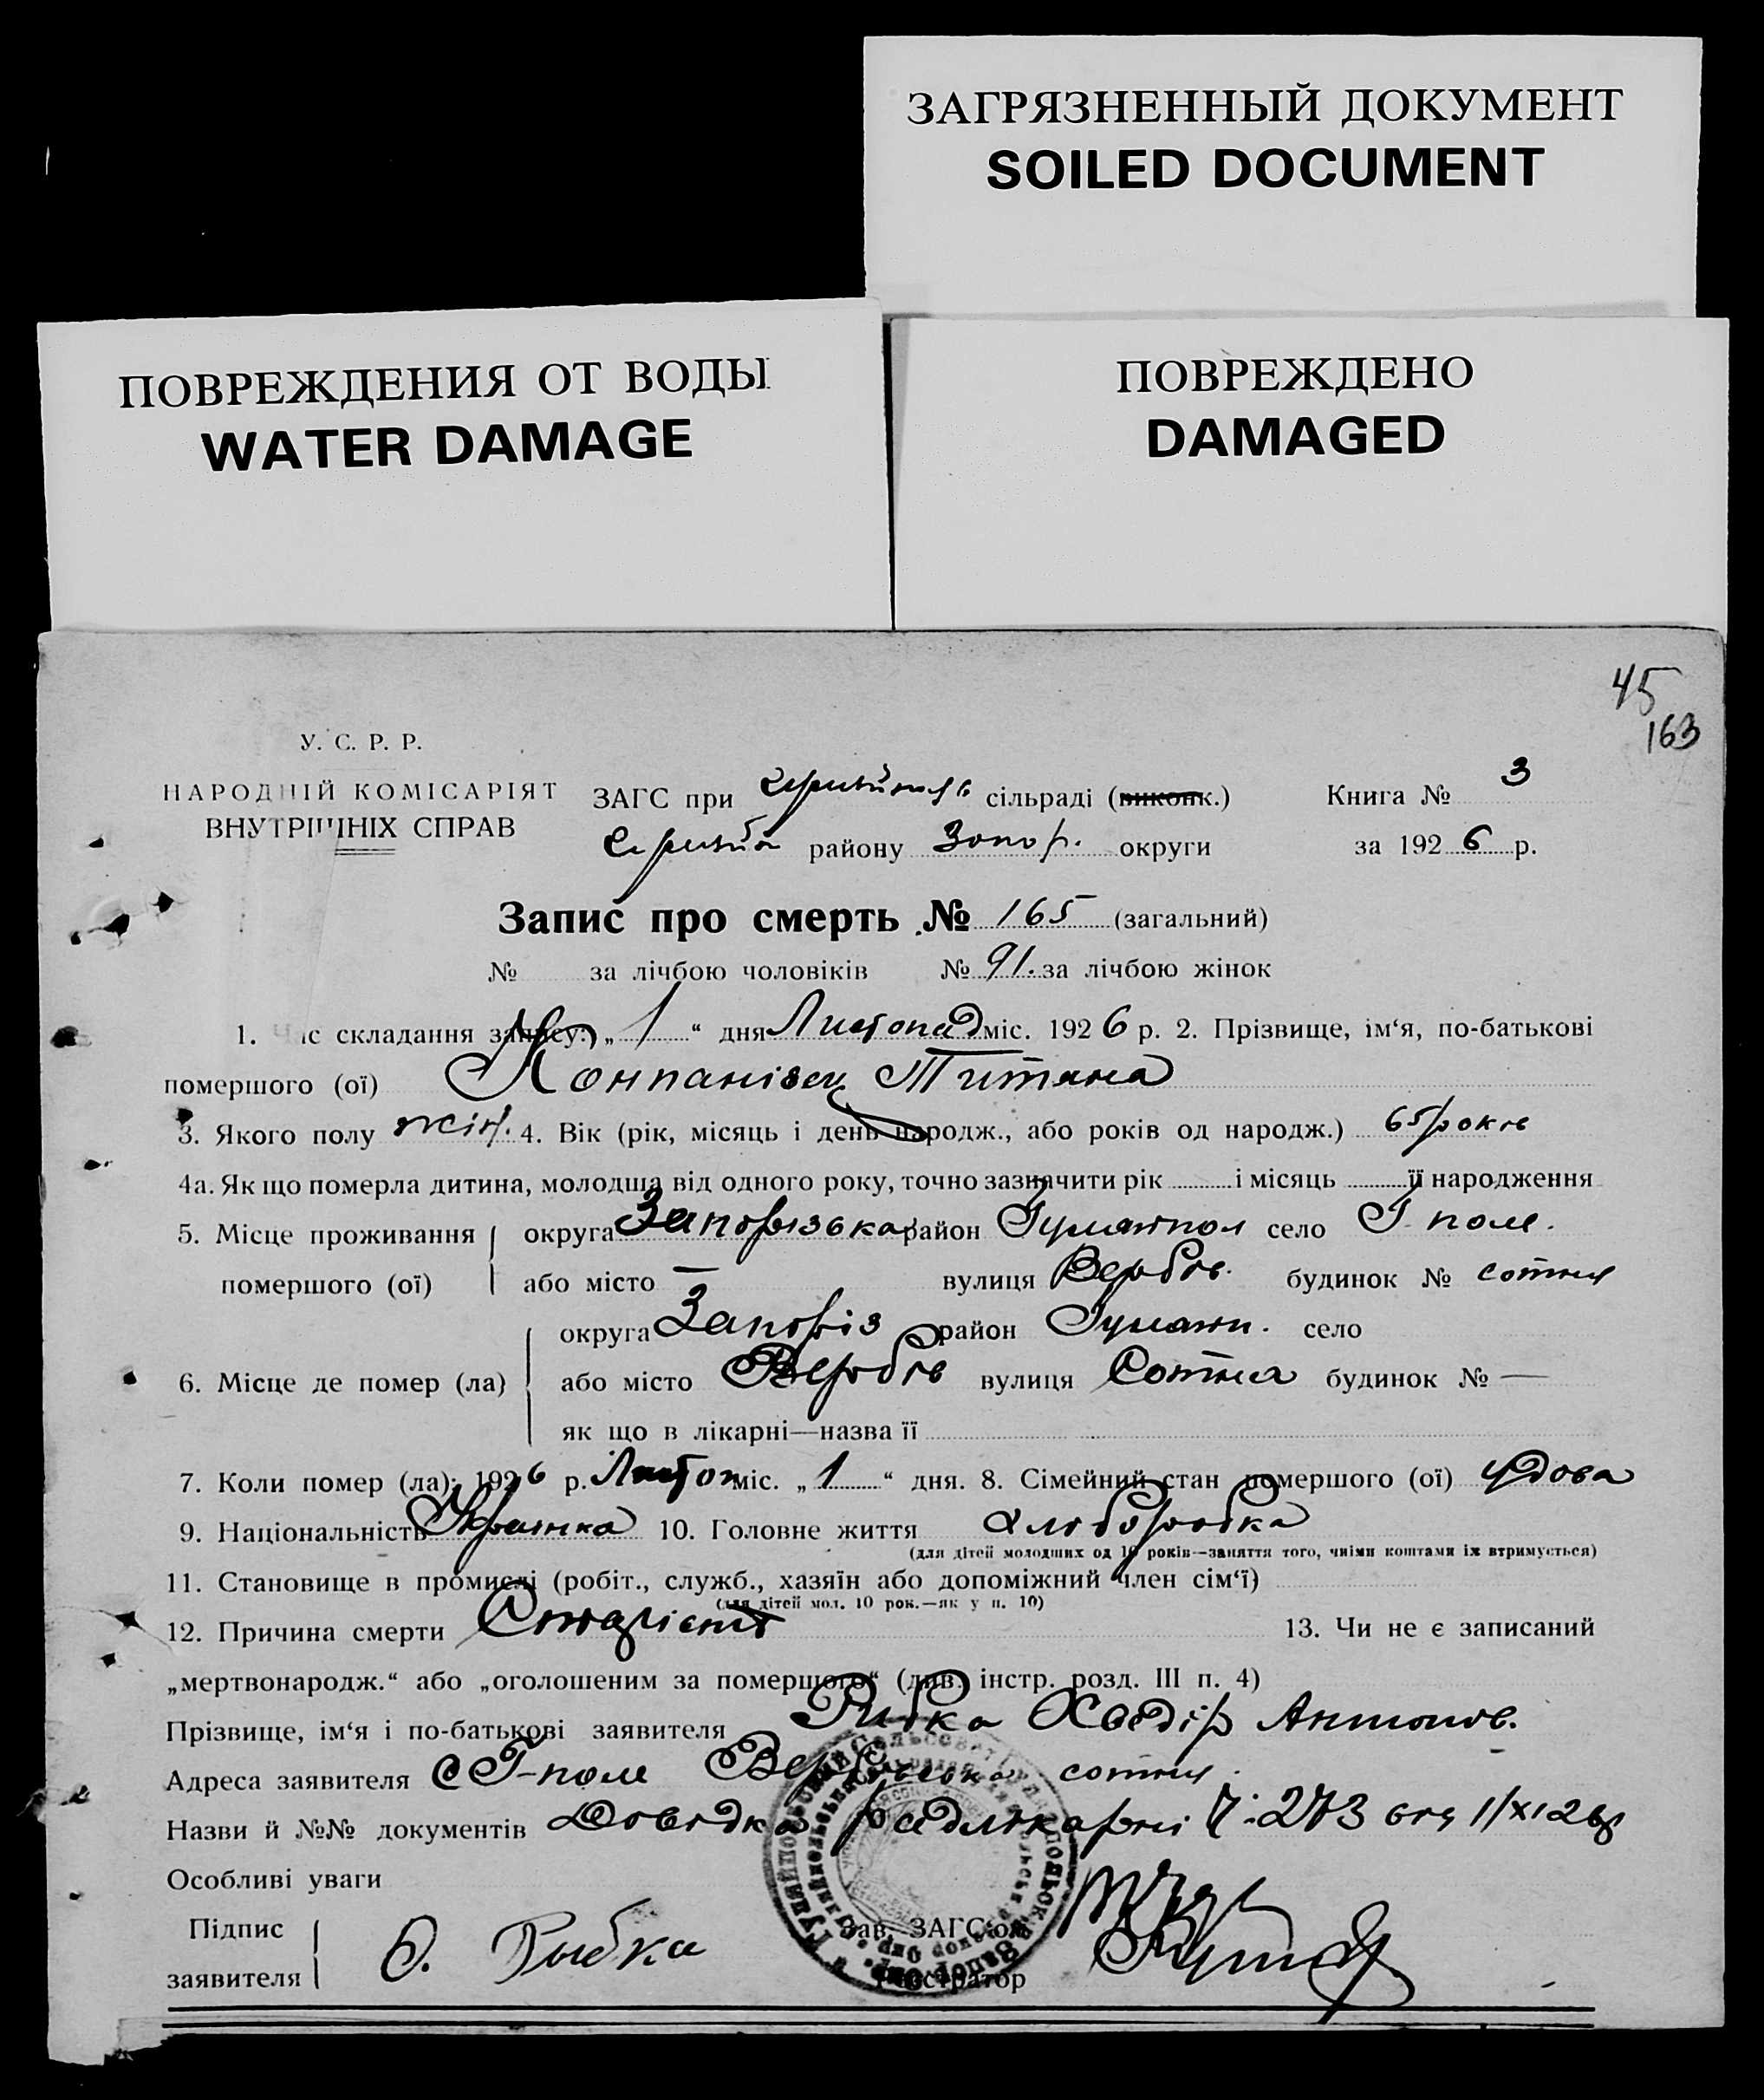 ЗАГРЯЗНЕННЫЙ ДОКУМЕНТ
SOILED DOCUMENT
ПОВРЕЖДЕНИЯ ОТ ВОДЫ
WATER DAMAGE
ПОВРЕЖДЕНО
DAMAGED
45
163
У. С. Р. Р.
НАРОДНІЙ КОМІСАРІЯТ
ВНУТРІШНІХ СПРАВ
ЗАГС при сільраді (виконк.)
району Запор. округи
Книга № 3
за 1926 р.
Запис про смерть № 165 (загальний)
№ за лічбою чоловіків № 91. за лічбою жінок
1. Час складання запису: „ 1 “ дня Листопад міс. 1926 р. 2. Прізвище, ім‘я, по-батькові
помершого (ої) Конпанієць Титяна
3. Якого полу жін. 4. Вік (рік, місяць і день народж., або років од народж.) 65 років
4а. Як що померла дитина, молодша від одного року, точно зазначити рік і місяць її народження
5. Місце проживання округа Запорізька район Гуляйпол село Г. поле.
помершого (ої) або місто — вулиця Вербов. будинок № сотня
6. Місце де помер (ла) округа Запоріз район Гуляйп. село
або місто Вербов вулиця Сотня будинок № —
як що в лікарні—назва її
7. Коли помер (ла): 1926 р. Листоп міс. „ 1 “ дня. 8. Сімейний стан помершого (ої) удова
9. Національність Українка 10. Головне життя Хлоборобка
(для дітей молодших од 10 років—заняття того, чиїми коштами їх втримується)
11. Становище в промислі (робіт., служб., хазяїн або допоміжний член сім‘ї)
(для дітей мол. 10 рок.—як у п. 10)
12. Причина смерти 13. Чи не є записаний
„мертвонародж.“ або „оголошеним за помершого“ (див. інстр. розд. III п. 4)
Прізвище, ім‘я і по-батькові заявителя Рибка Хведір Антонов.
Адреса заявителя С Г-поле Вербівська сотня.
Назви й №№ документів Довідка радлікарні Ч: 273 від 1/XI 26р
Особливі уваги
Підпис
заявителя
Ф. Рыбка
Зав. ЗАГС‘ом
Реєстратор